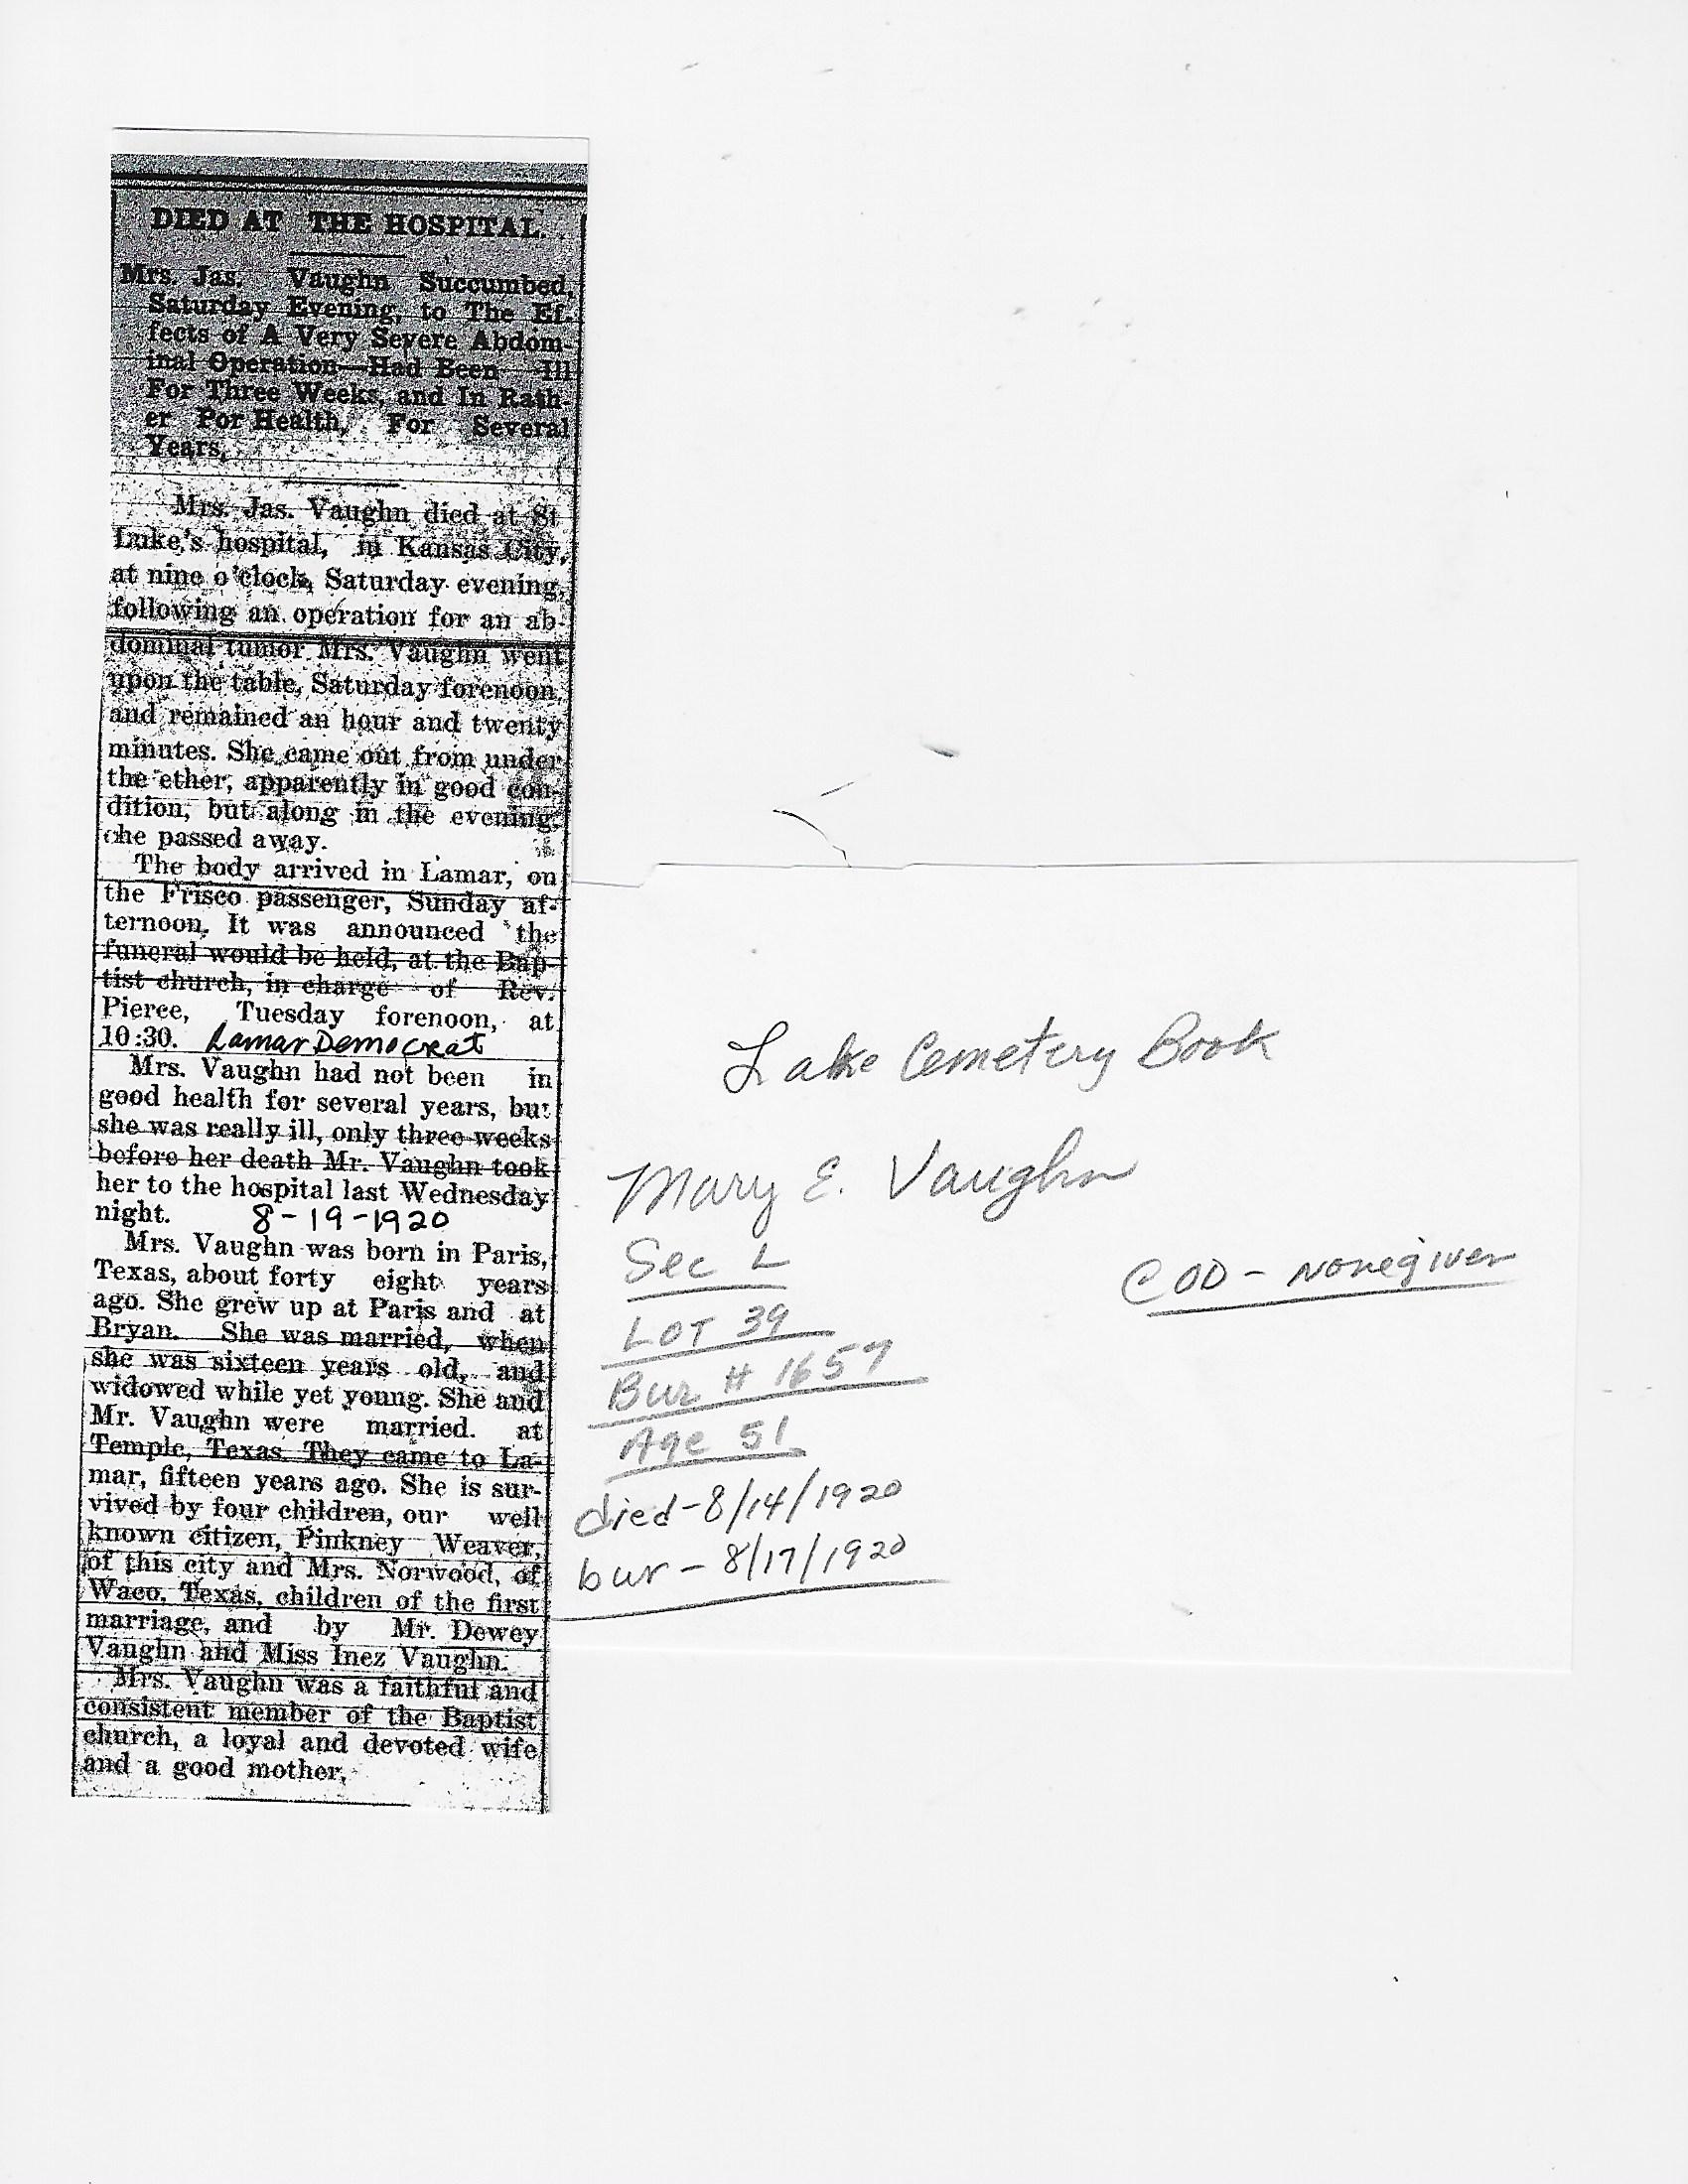 DIED AT THE HOSPITAL.
Mrs. Jas. Vaughn Succumbed,
Saturday Evening, to The Ef-
fects of A Very Severe Abdom-
inal Operation—Had Been Ill
For Three Weeks, and In Rath-
er Por Health, For Several
Years,
Mrs. Jas. Vaughn died at St
Luke's hospital, in Kansas City,
at nine o'clock, Saturday evening,
following an operation for an ab-
dominal tumor Mrs. Vaughn went
upon the table, Saturday forenoon,
and remained an hour and twenty
minutes. She came out from under
the ether, apparently in good con-
dition, but along in the evening,
che passed away.
The body arrived in Lamar, on
the Frisco passenger, Sunday af-
ternoon. It was announced the
funeral would be held, at the Bap-
tist church, in charge of Rev.
Pierce, Tuesday forenoon, at
10:30. Lamar Democrat
Mrs. Vaughn had not been in
good health for several years, but
she was really ill, only three weeks
before her death Mr. Vaughn took
her to the hospital last Wednesday
night. 8-19-1920
Mrs. Vaughn was born in Paris,
Texas, about forty eight years
ago. She grew up at Paris and at
Bryan. She was married, when
she was sixteen years old, and
widowed while yet young. She and
Mr. Vaughn were married. at
Temple, Texas. They came to La-
mar, fifteen years ago. She is sur-
vived by four children, our well
known citizen, Pinkney Weaver,
of this city and Mrs. Norwood, of
Waco, Texas, children of the first
marriage, and by Mr. Dewey
Vaughn and Miss Inez Vaughn.
Mrs. Vaughn was a faithful and
consistent member of the Baptist
church, a loyal and devoted wife
and a good mother,
Lake Cemetery Book
Mary E. Vaughn
Sec L
COD - nonegiven
LOT 39
Bur # 1657
Age 51
died-8/14/1920
bur-8/17/1920